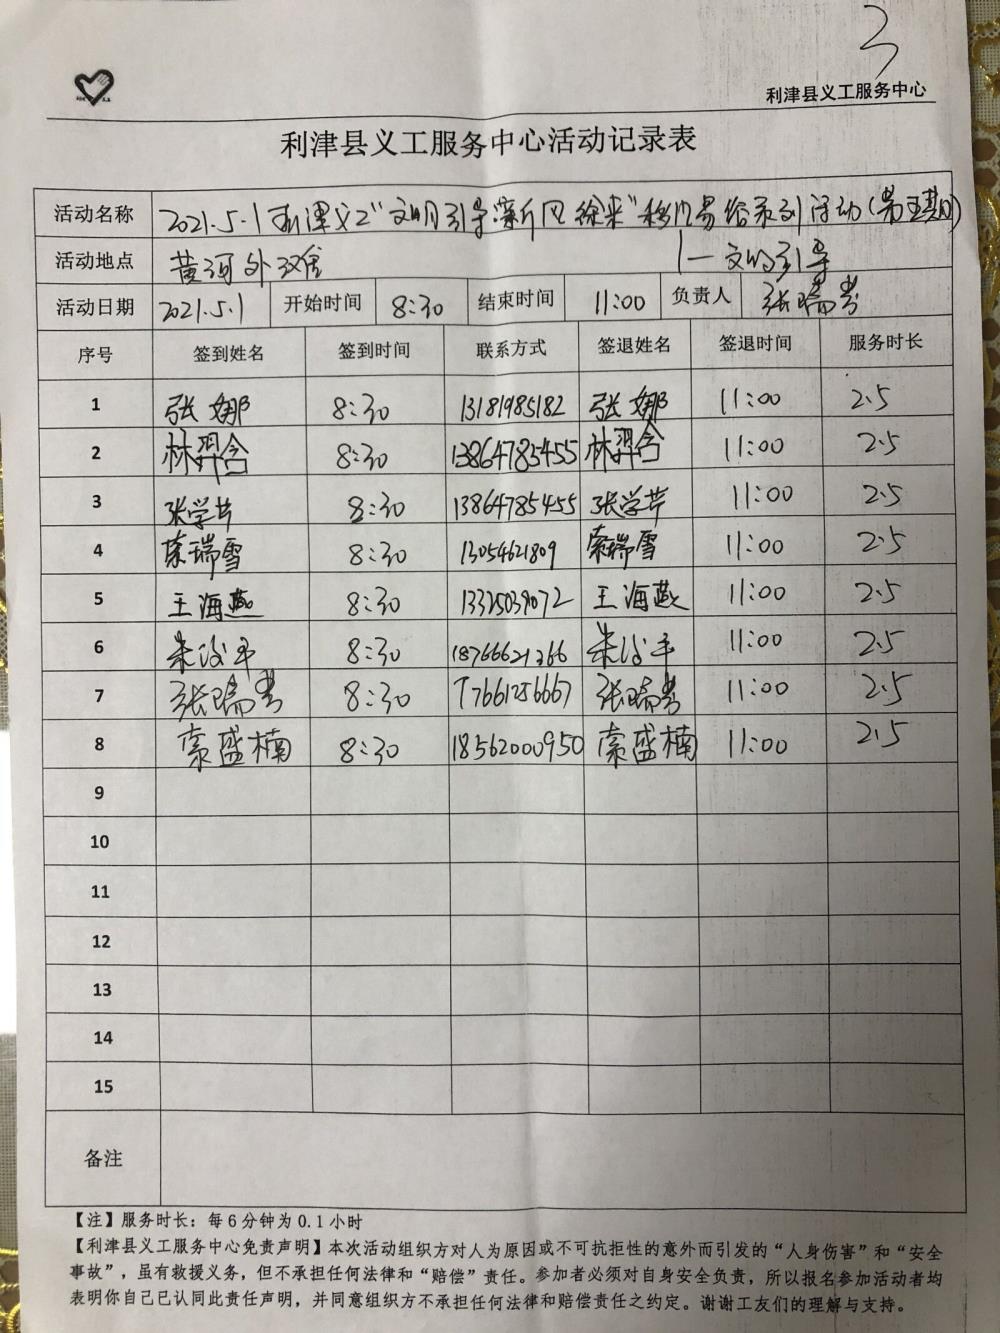 3
利津县义工服务中心
利津县义工服务中心活动记录表
活动名称 2021.5.1利津义工"文明引导 新风徐来"移风易俗系列活动(第五期)
活动地点 黄河外滩 |一文明引导
活动日期 2021.5.1 开始时间 8:30 结束时间 11:00 负责人 张瑞芳
序号 签到姓名 签到时间 联系方式 签退姓名 签退时间 服务时长
1 张娜 8:30 13181985182 张娜 11:00 2.5
2 林羿含 8:30 13864785455 林羿含 11:00 2.5
3 张学芹 8:30 13864785455 张学芹 11:00 2.5
4 索瑞雪 8:30 13054621809 索瑞雪 11:00 2.5
5 王海燕 8:30 王海燕 11:00 2.5
6 8:30 18766621366 11:00 2.5
7 张瑞芳 8:30 17661256667 张瑞芳 11:00 2.5
8 索盛楠 8:30 18562000950 索盛楠 11:00 2.5
9
10
11
12
13
14
15
备注
【注】服务时长：每6分钟为0.1小时
【利津县义工服务中心免责声明】本次活动组织方对人为原因或不可抗拒性的意外而引发的“人身伤害”和“安全
事故”，虽有救援义务，但不承担任何法律和“赔偿”责任。参加者必须对自身安全负责，所以报名参加活动者均
表明你自己已认同此责任声明，并同意组织方不承担任何法律和赔偿责任之约定。谢谢工友们的理解与支持。